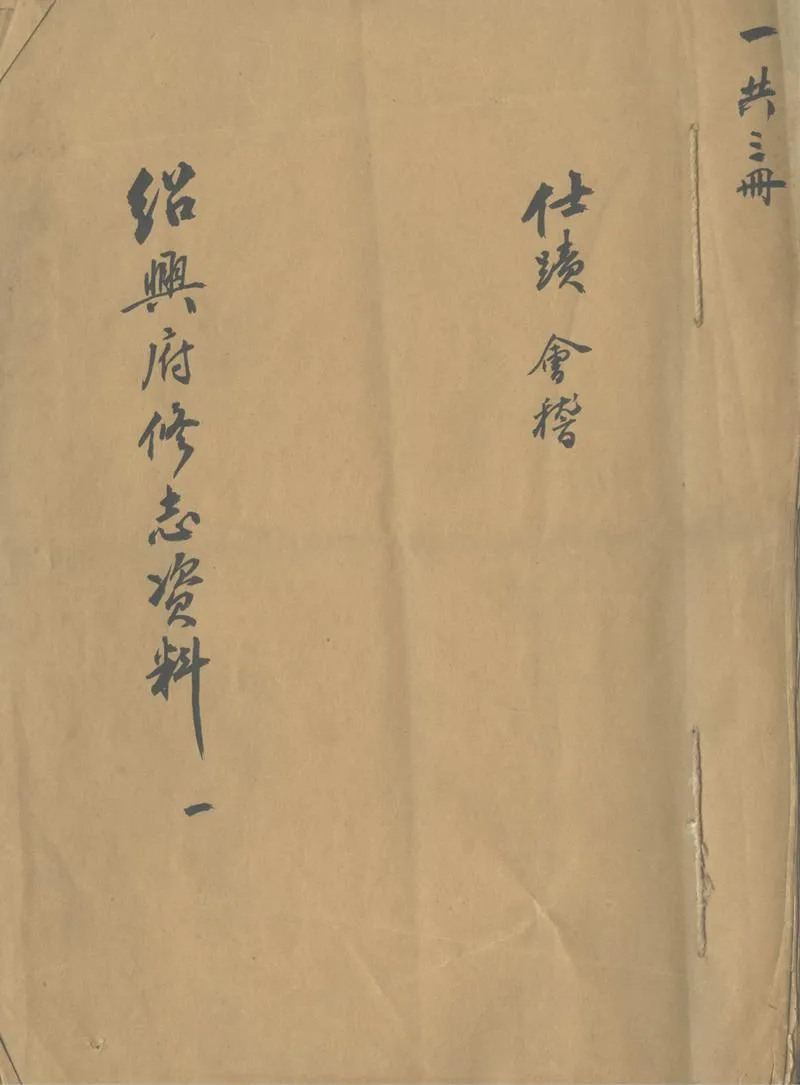 一共三冊
仕蹟 會稽
紹興府修志资料 一